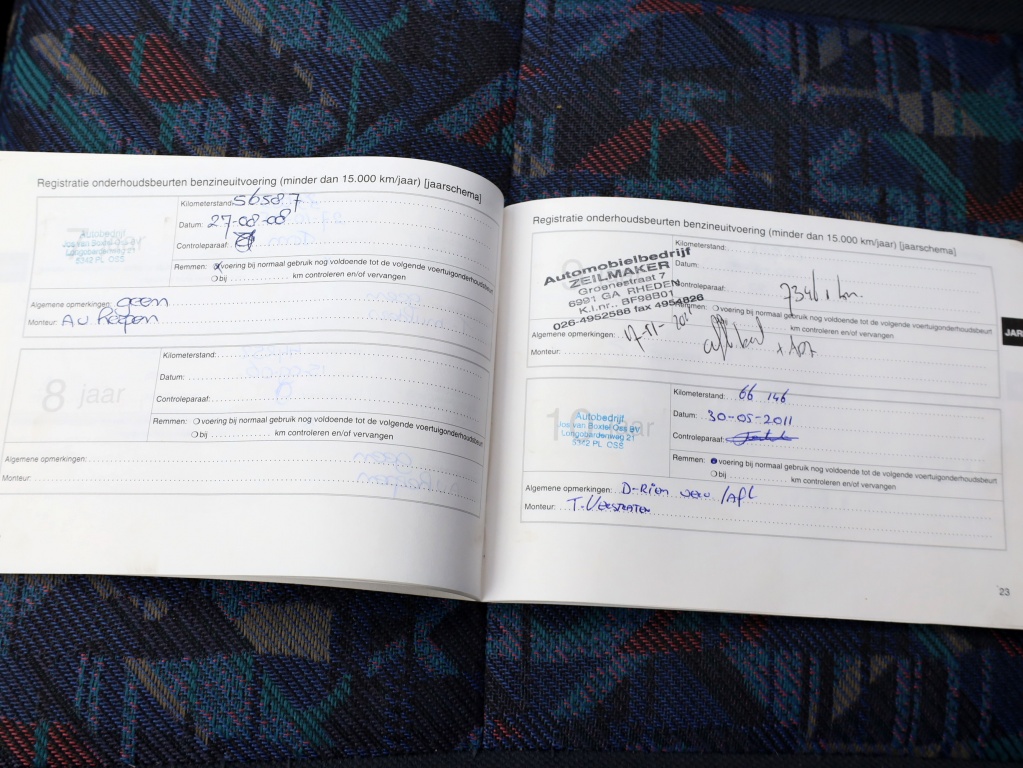 Registratie onderhoudsbeurten benzineuitvoering (minder dan 15.000 km/jaar) [jaarschema]
Autobedrijf
Jos van Boxtel Oss BV
Longobardenweg 21
5342 PL OSS
Kilometerstand: 56587
Datum: 27-08-08
Controleparaaf:
Remmen: voering bij normaal gebruik nog voldoende tot de volgende voertuigonderhoudsbeurt
bij km controleren en/of vervangen
Algemene opmerkingen: geen
Monteur:
8 jaar
Kilometerstand:
Datum:
Controleparaaf:
Remmen: voering bij normaal gebruik nog voldoende tot de volgende voertuigonderhoudsbeurt
bij km controleren en/of vervangen
Algemene opmerkingen:
Monteur:
Registratie onderhoudsbeurten benzineuitvoering (minder dan 15.000 km/jaar) [jaarschema]
Automobielbedrijf
ZEILMAKER
Groenestraat 7
6991 GA RHEDEN
K.i.nr.. BF98B01
026-4952588 fax 4954826
Kilometerstand:
Datum:
Controleparaaf: 73461 km.
Remmen: voering bij normaal gebruik nog voldoende tot de volgende voertuigonderhoudsbeurt
km controleren en/of vervangen
Algemene opmerkingen: 17-11-2011
Monteur:
Autobedrijf
Jos van Boxtel Oss BV
Longobardenweg 21
5342 PL OSS
Kilometerstand: 66 146
Datum: 30-05-2011
Controleparaaf:
Remmen: voering bij normaal gebruik nog voldoende tot de volgende voertuigonderhoudsbeurt
bij km controleren en/of vervangen
Algemene opmerkingen: D-Riem verv /Apk
Monteur: T. Verstraten
JAR
23